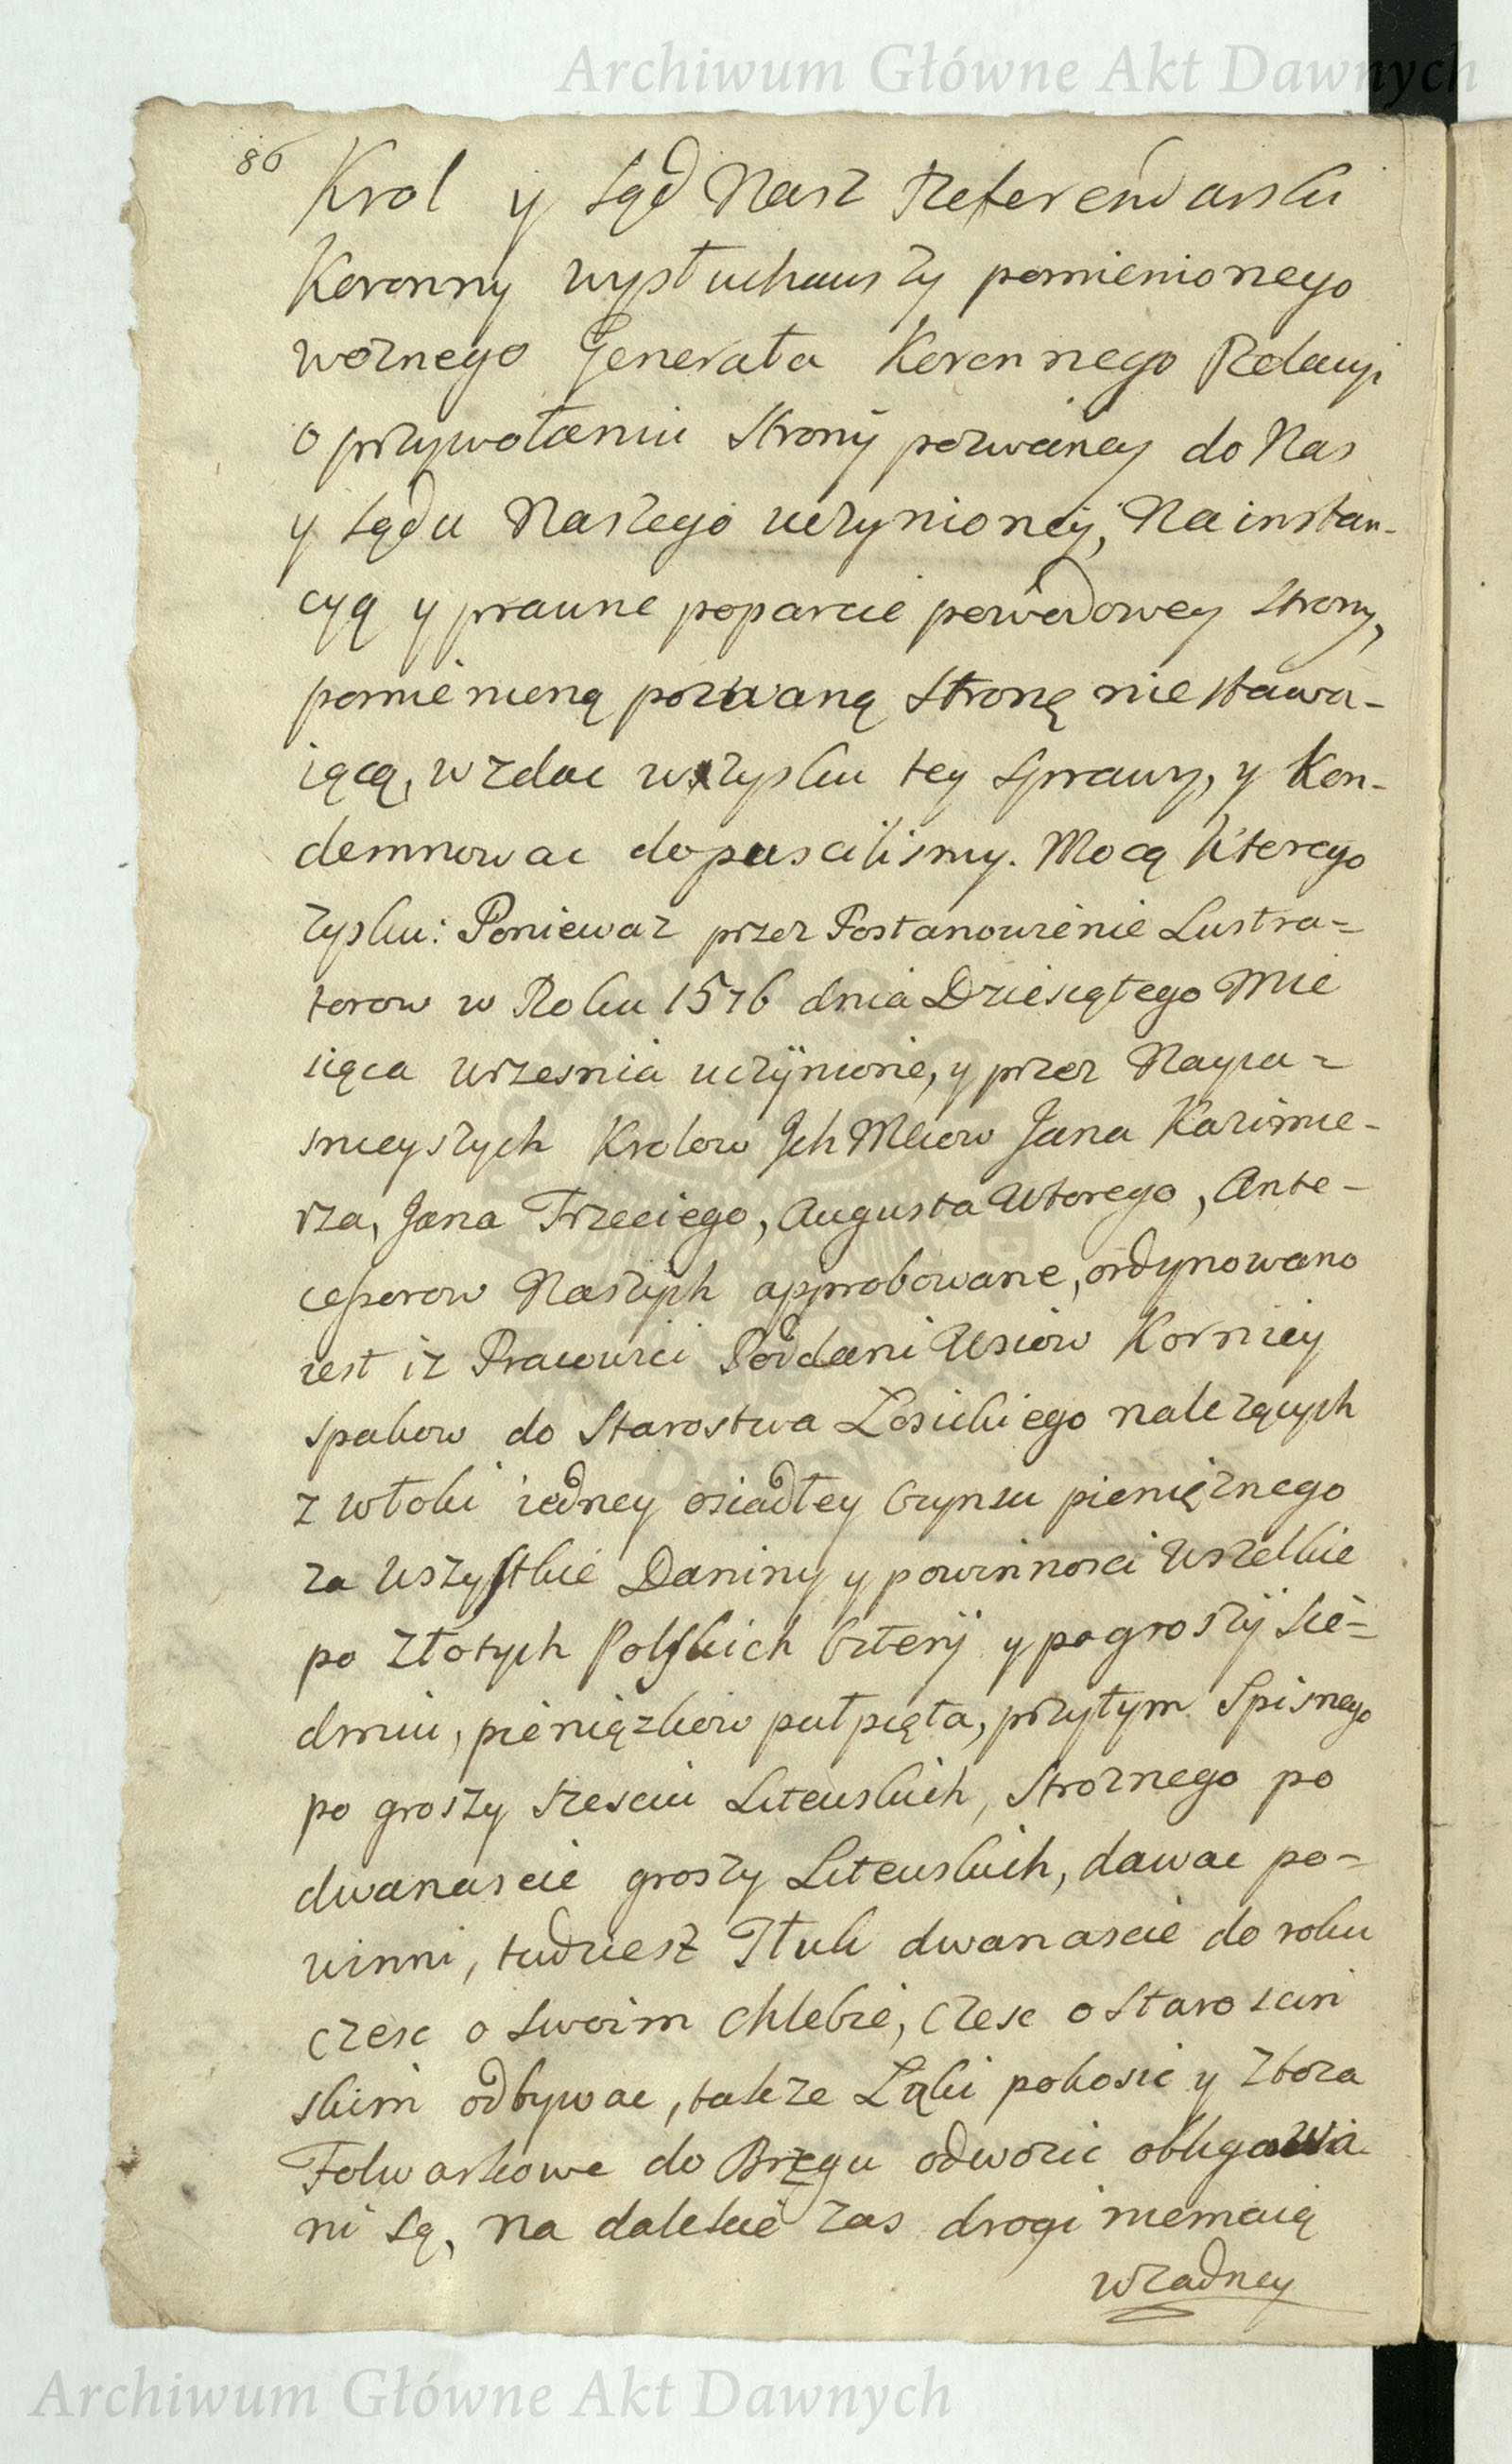 Archiwum Główne Akt Dawnych
86
Krol y Sąd Nasz Referendarski
Koronny wysłuchawszy pomienionego
woznego Generała Koronnego Relacyi
o przywołaniu Strony pozwaney do Nas
y Sądu Naszego uczynioney, Na instan-
cyą y prawne poparcie powodowey Strony,
pomienioną pozwaną Stronę nie stawa-
iącą, w zdac w zysku tey Sprawy, y Kon-
demnowac dopuscilismy. Mocą ktorego
zysku: Poniewaz przez Postanowienie Lustra=
torow w Roku 1576 dnia Dziesiątego Mie
siąca Wrzesnia uczynione, y przez Nayia=
snieyszych Krolow Ich Mciow Jana Kazimie-
rza, Jana Trzeciego, Augusta Wtorego, Ante-
cessorow Naszych approbowane, ordynowano
iest iz Pracowici Poddani Wsiow Kornicy
spakow do Starostwa Łosickiego nalezących
z włoki iedney osiadłey Czynszu pienięznego
za wszystkie Daniny y powinnosci wszelkie
po Złotych Polskich Cztery y po groszy Sie=
dmiu, pieniązkow puł pięta, przytym Spisnego
po groszy szesciu Litewskich, Stroznego po
dwanascie groszy Litewskich, dawac po=
winni, tudziesz Tłuk dwanascie do roku
czesc o Swoim Chlebie, czesc o Staroscin
skim odbywac, takze Łąki pokosic y Zboza
Folwarkowe do Brzegu odwozic obligowa
ni są, na dalekie zas drogi niemaią
wzadney
Archiwum Główne Akt Dawnych